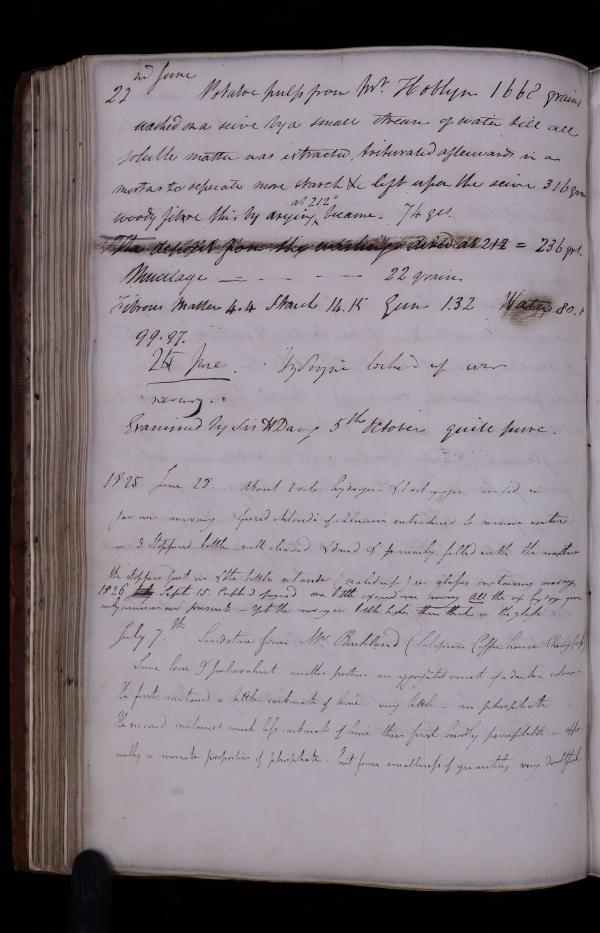 22nd June Potatoe pulp from Mr. Hoblyn 1668 grains
washed on a seive by a small stream of water till all
soluble matter was extracted, triturated afterwards in a
mortar to seperate more starch &c left upon the seive 316 grs
woody fibre this by drying at 212° became - 74 grs.
The deposit from the washings dried at 212 = 236 grs.
Mucilage — — — — 22 grains
Fibrous matter 4.4 Starch 14.15 Gum 1.32 Water 80.1
99.97.
24 June. Hydrogene locked up over
mercury.
Examined by Sir H Davy 5th October quite pure.
1825 June 28 About 2 vols hydrogen & 1 vol oxygen mixed in
jar over mercury. fused chloride of calcium introduced to remove water.
3 Stoppered bottles well cleaned & dried & nearly filled with the mixture
the stoppers put in & the bottles set aside in glasses containing mercury
1826 Sept 15. one bottle over mercury all the ox & hy gone
July 7th. Sandstone from Mr Buckland ( Coffee house Charing Cross)
Some loose & pulverulent another portion an aggregated mass of a darker colour
The first contained a little carbonate of lime - very little - no phosphate
The second contained much less carbonate of lime than first hardly perceptible -
a minute proportion of phosphate. but from smallness of quantities very doubtful